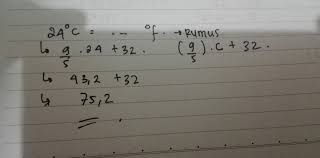 24°C = ... °F. → Rumus
↳ 9/5 . 24 + 32. (9/5) . C + 32.
↳ 43,2 + 32
↳ 75,2